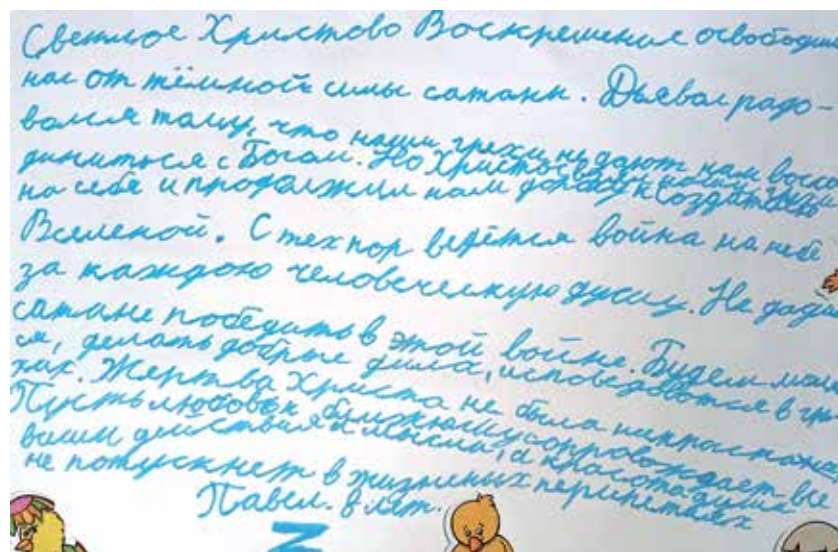 Светлое Христово Воскрешение освободил
нас от тёмной силы сатаны. Дьявол радо-
вался тому, что наши грехи не дают нам воссо
диниться с Богом. Но Христос взял наши грехи
на себя и продолжил нам дорогу к Создателю
Вселеной. С тех пор ведётся война на небе
за каждою человеческую душу. Не дади
сатане победить в этой войне. Будем моли
ся, делать добрые дила, исповедоватся в гре
хах. Жертва Христа не была напрастной
Пусть любовь к ближнему сопровождает все
ваши действия и мысли, а красота души
не потускнет в жизненых перипетиях
Павел. 8 лет.
Z